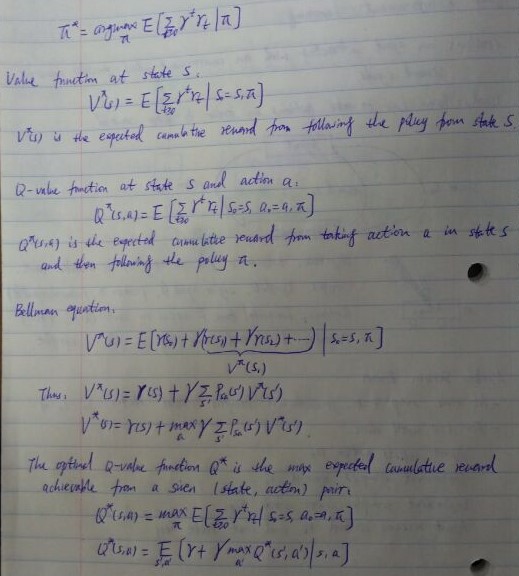 π* = argmax_π E[Σ_{t≥0} γ^t r_t | π]
Value function at state s.
V^π(s) = E[Σ_{t≥0} γ^t r_t | s_0=s, π]
V^π(s) is the expected cumulative reward from following the policy from state s.
Q-value function at state s and action a.
Q^π(s,a) = E[Σ_{t≥0} γ^t r_t | s_0=s, a_0=a, π]
Q^π(s,a) is the expected cumulative reward from taking action a in state s
and then following the policy π.
Bellman equation.
V^π(s) = E[r(s_0) + γ(r(s_1) + γr(s_2) + ⋯) | s_0=s, π]
V^π(s_1)
Thus, V^π(s) = r(s) + γ Σ_{s'} P_{sa}(s') V^π(s')
V*(s) = r(s) + max_a γ Σ_{s'} P_{sa}(s') V*(s').
The optimal Q-value function Q* is the max expected cumulative reward
achievable from a given (state, action) pair.
Q*(s,a) = max_π E[Σ_{t≥0} γ^t r_t | s_0=s, a_0=a, π]
Q*(s,a) = E_{s',a'} [r + γ max_{a'} Q*(s',a') | s,a]